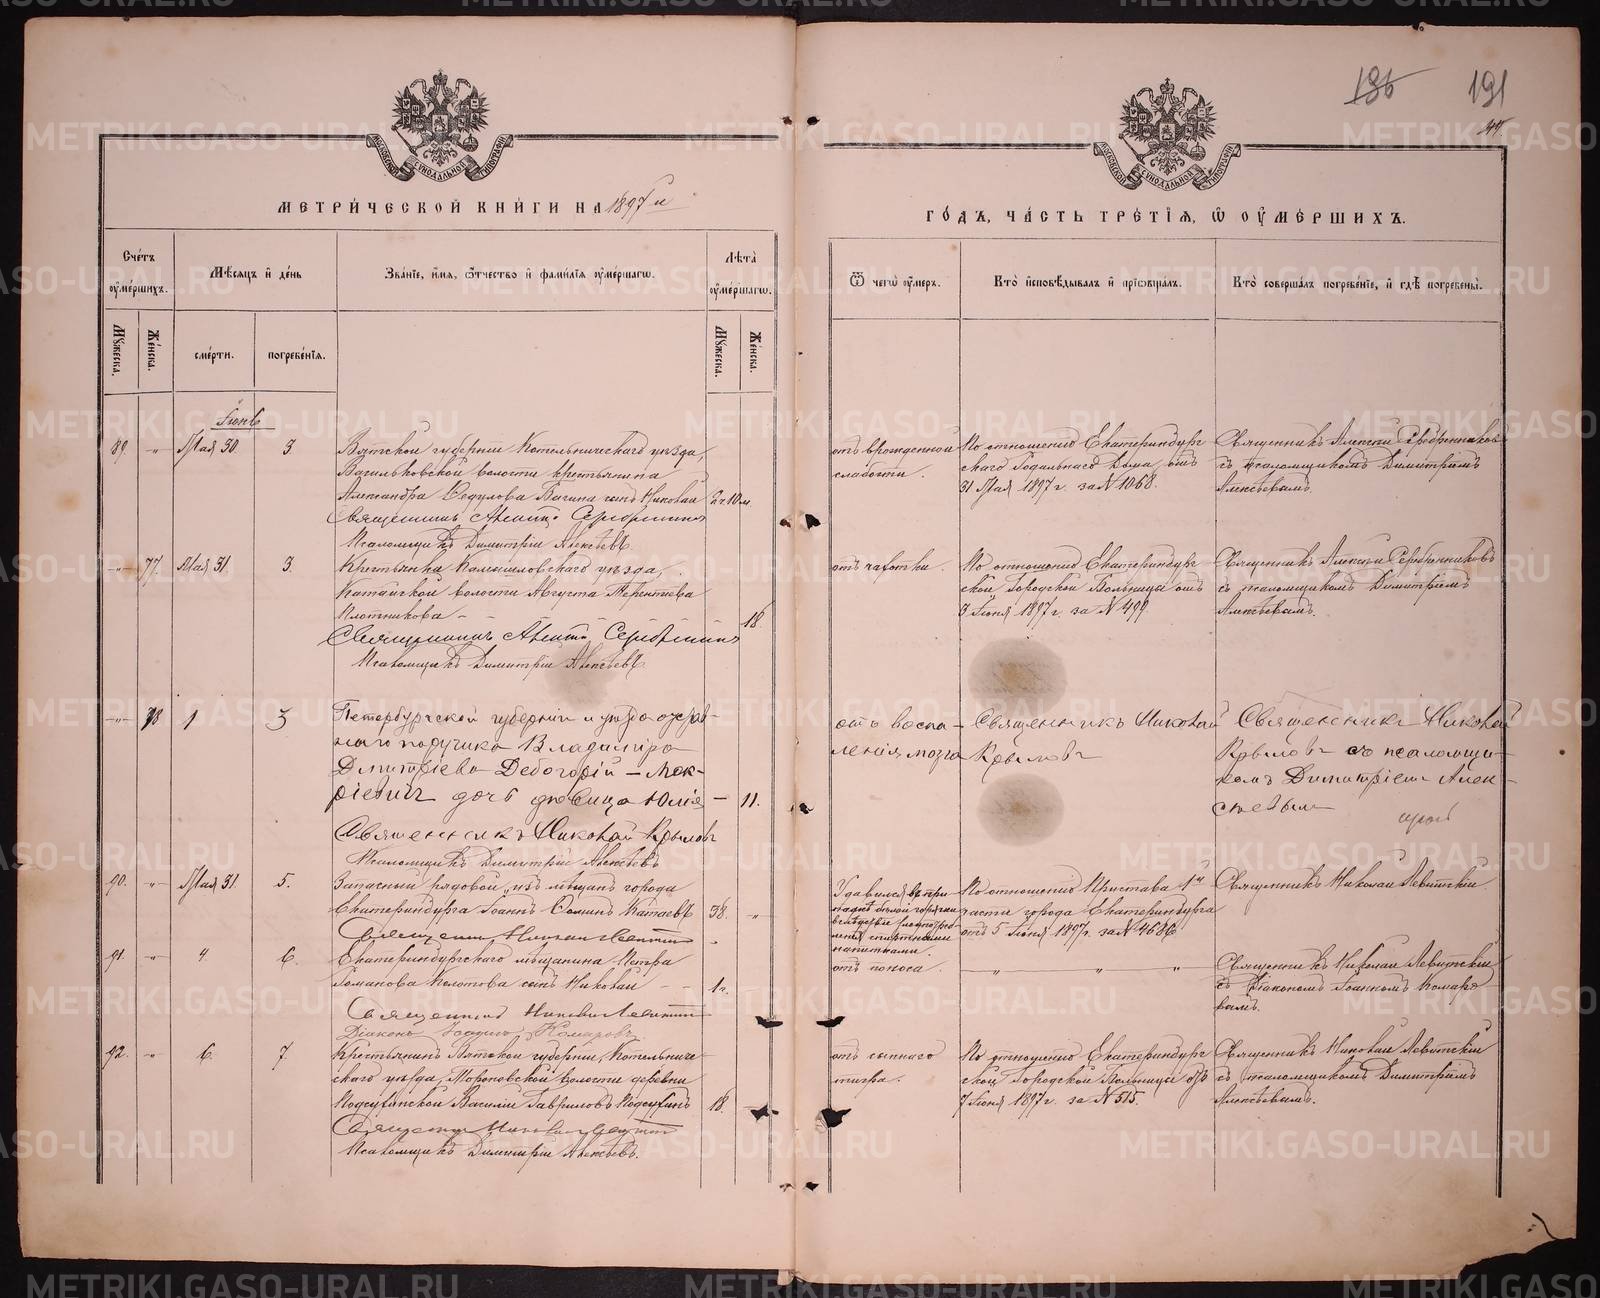 136 191
МОСКОВСКОЙ СѴНОДАЛЬНОЙ ТИПОГРАФІИ
МОСКОВСКОЙ СѴНОДАЛЬНОЙ ТИПОГРАФІИ
МЕТРИ́ЧЕСКОЙ КНИ́ГИ НА 1897й
ГО́ДЪ, ЧА́СТЬ ТРЕ́ТІЯ, Ѿ ОУМЕ́РШИХЪ.
Сче́тъ оуме́ршихъ.
Мѣ́сяцъ и҆ де́нь
Зва́ніе, и҆́мя, ѻ҆́тчество и҆ фами́лія оуме́ршагѡ.
Лѣта̀ оуме́ршагѡ.
Ѿ чегѡ̀ оу́меръ.
Кто̀ и҆сповѣ́дывалъ и҆ прїѡбща́лъ.
Кто̀ соверша́лъ погребе́ніе, и҆ гдѣ̀ погребены̀.
Мꙋ́жеска. Же́нска. сме́рти. погребе́нія. Мꙋ́жеска. Же́нска.
Іюнь
89. „ Мая 30. 3.
Вятской губерніи Котельническаго уѣзда,
волости крестьянина
Александра Ѳедулова сынъ Николай 2 ч 10 м.
Священникъ Алексій Серебренниковъ
Псаломщикъ Димитрій Алексѣевъ
отъ врожденной
слабости.
По отношенію Екатеринбург
скаго Родильнаго Дома, отъ
31 Мая 1897 г. за N 1068.
Священникъ Алексій Серебренниковъ
съ псаломщикомъ Димитріемъ
Алексѣевымъ.
„ 77. Мая 31. 3.
Крестьянка Камышловскаго уѣзда,
Катайской волости Августа Терентьева
Плотникова - - 18.
Священникъ Алексій Серебренниковъ
Псаломщикъ Димитрій Алексѣевъ
отъ чахотки.
По отношенію Екатеринбург
ской Городской Больницы отъ
3 Іюня 1897 г. за N 499
Священникъ Алексій Серебренниковъ
съ псаломщикомъ Димитріемъ
Алексѣевымъ.
„ 78 1 3
Петербургской губерніи и уѣзда отстав-
наго поручика Владиміра
Димитріева Дебогорій-Мок-
ріевичъ дочь дѣвица Юлія - 11.
Священникъ Николай Крыловъ
Псаломщикъ Димитрій Алексѣевъ
отъ воспа-
ленія мозга
Священникъ Николай
Крыловъ
Священникъ Николай
Крыловъ съ псаломщи-
комъ Димитріемъ Алек-
сѣевымъ
90. „ Мая 31. 5.
Запасный рядовой, изъ мѣщанъ города
Екатеринбурга Іоаннъ Ѳоминъ Катаевъ 38. „
Священникъ Николай Левитскій
Удавился въ при-
падкѣ бѣлой горячки
вслѣдствіе употреб-
ленія спиртными
напитками.
По отношенію Пристава 1й
части города Екатеринбурга
отъ 5 Іюня 1897 г. за N 4686
Священникъ Николай Левитскій.
91. „ 4. 6.
Екатеринбургскаго мѣщанина Петра
Романова Колотова сынъ Николай - - 1 н.
Священникъ Николай Левитскій
Діаконъ Іоаннъ Комаровъ
отъ поноса. „ „ „
Священникъ Николай Левитскій
съ Діакономъ Іоанномъ Комаро-
вымъ.
92. „ 6. 7.
Крестьянинъ Вятской губерніи, Котельниче-
скаго уѣзда, волости деревни
Василій Гавриловъ 18.
Священникъ Николай Левитскій
Псаломщикъ Димитрій Алексѣевъ.
отъ сыпного
тифа.
По отношенію Екатеринбург
ской Городской Больницы отъ
7 Іюня 1897 г. за N 515.
Священникъ Николай Левитскій
съ псаломщикомъ Димитріемъ
Алексѣевымъ.
METRIKI.GASO-URAL.RU